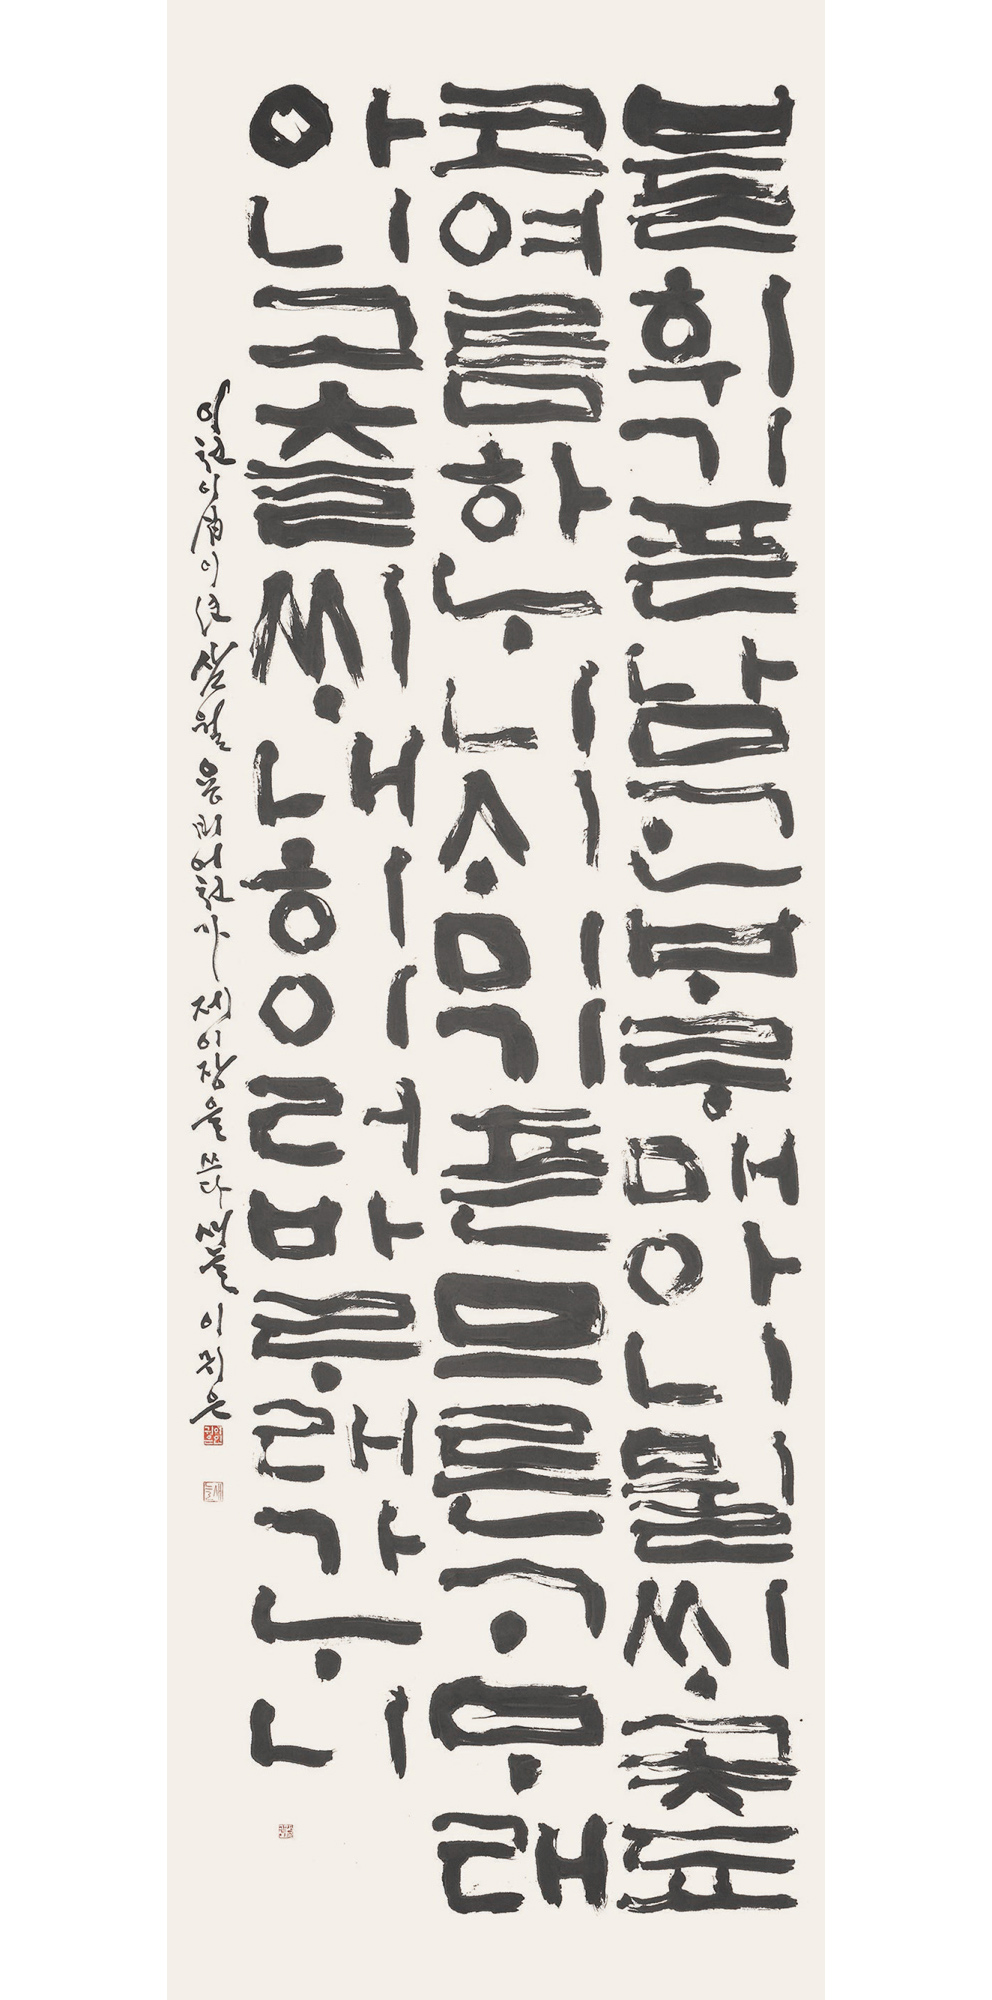 불휘기픈남ᄀᆞᆫᄇᆞᄅᆞ매아니뮐ᄊᆡ곶됴
코여름하ᄂᆞ니ᄉᆡ미기픈므른ᄀᆞᄆᆞ래
아니그츨ᄊᆡ내히이러바ᄅᆞ래가ᄂᆞ니
이천이십이년 삼월 용비어천가 제이장을 쓰다